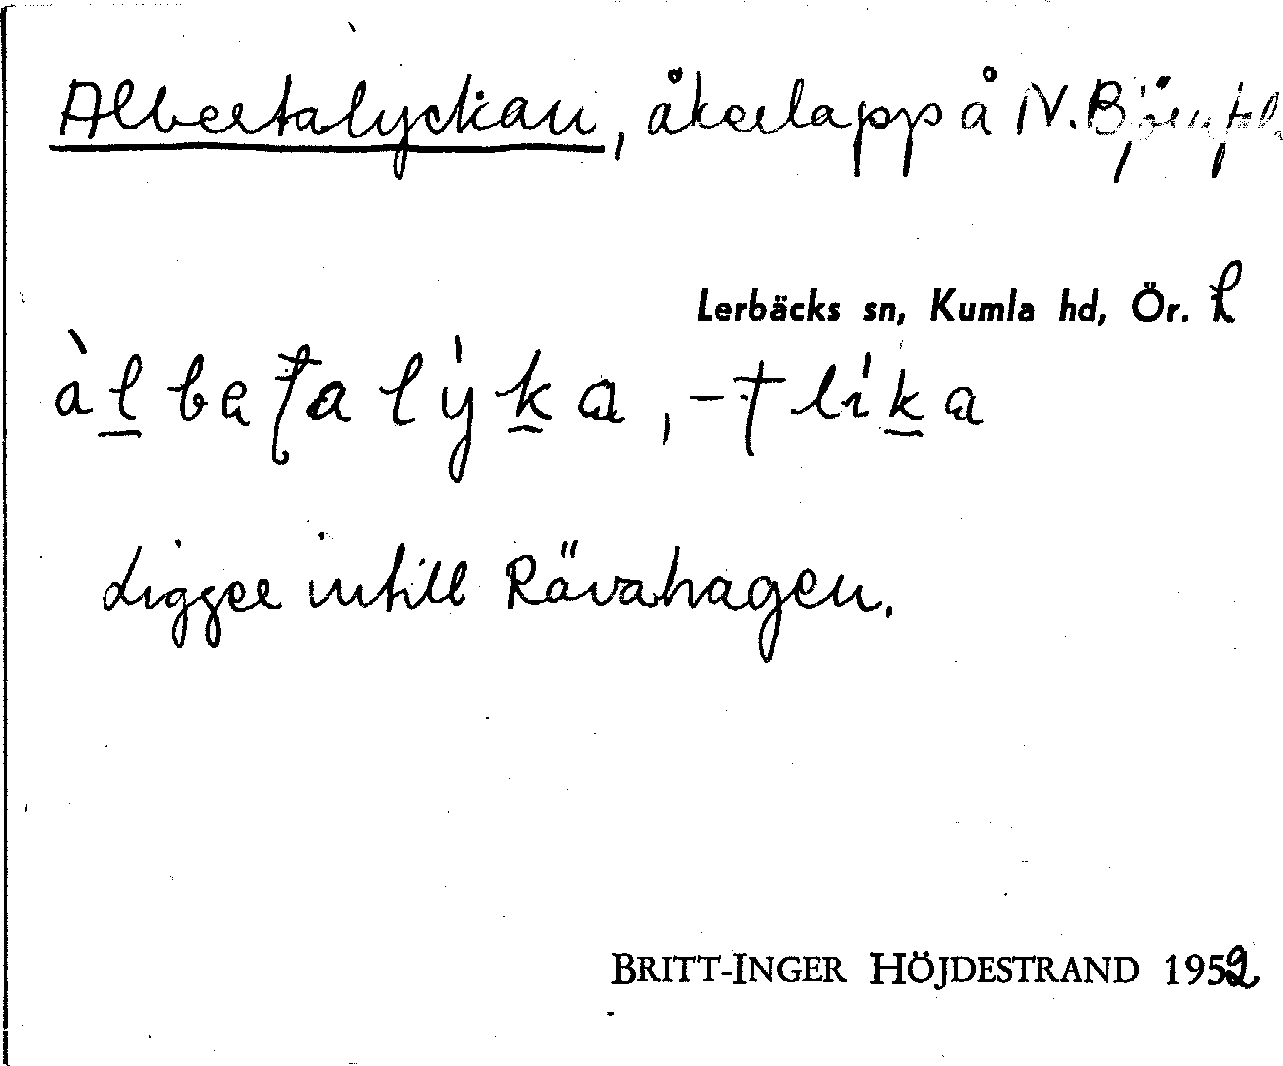 Albertalyckan, åkerlapp å N.
Lerbäcks sn, Kumla hd, Ör. L
àlbeʈalỳka, -ʈlika
Ligger intill Rävahagen.
BRITT-INGER HÖJDESTRAND 1952